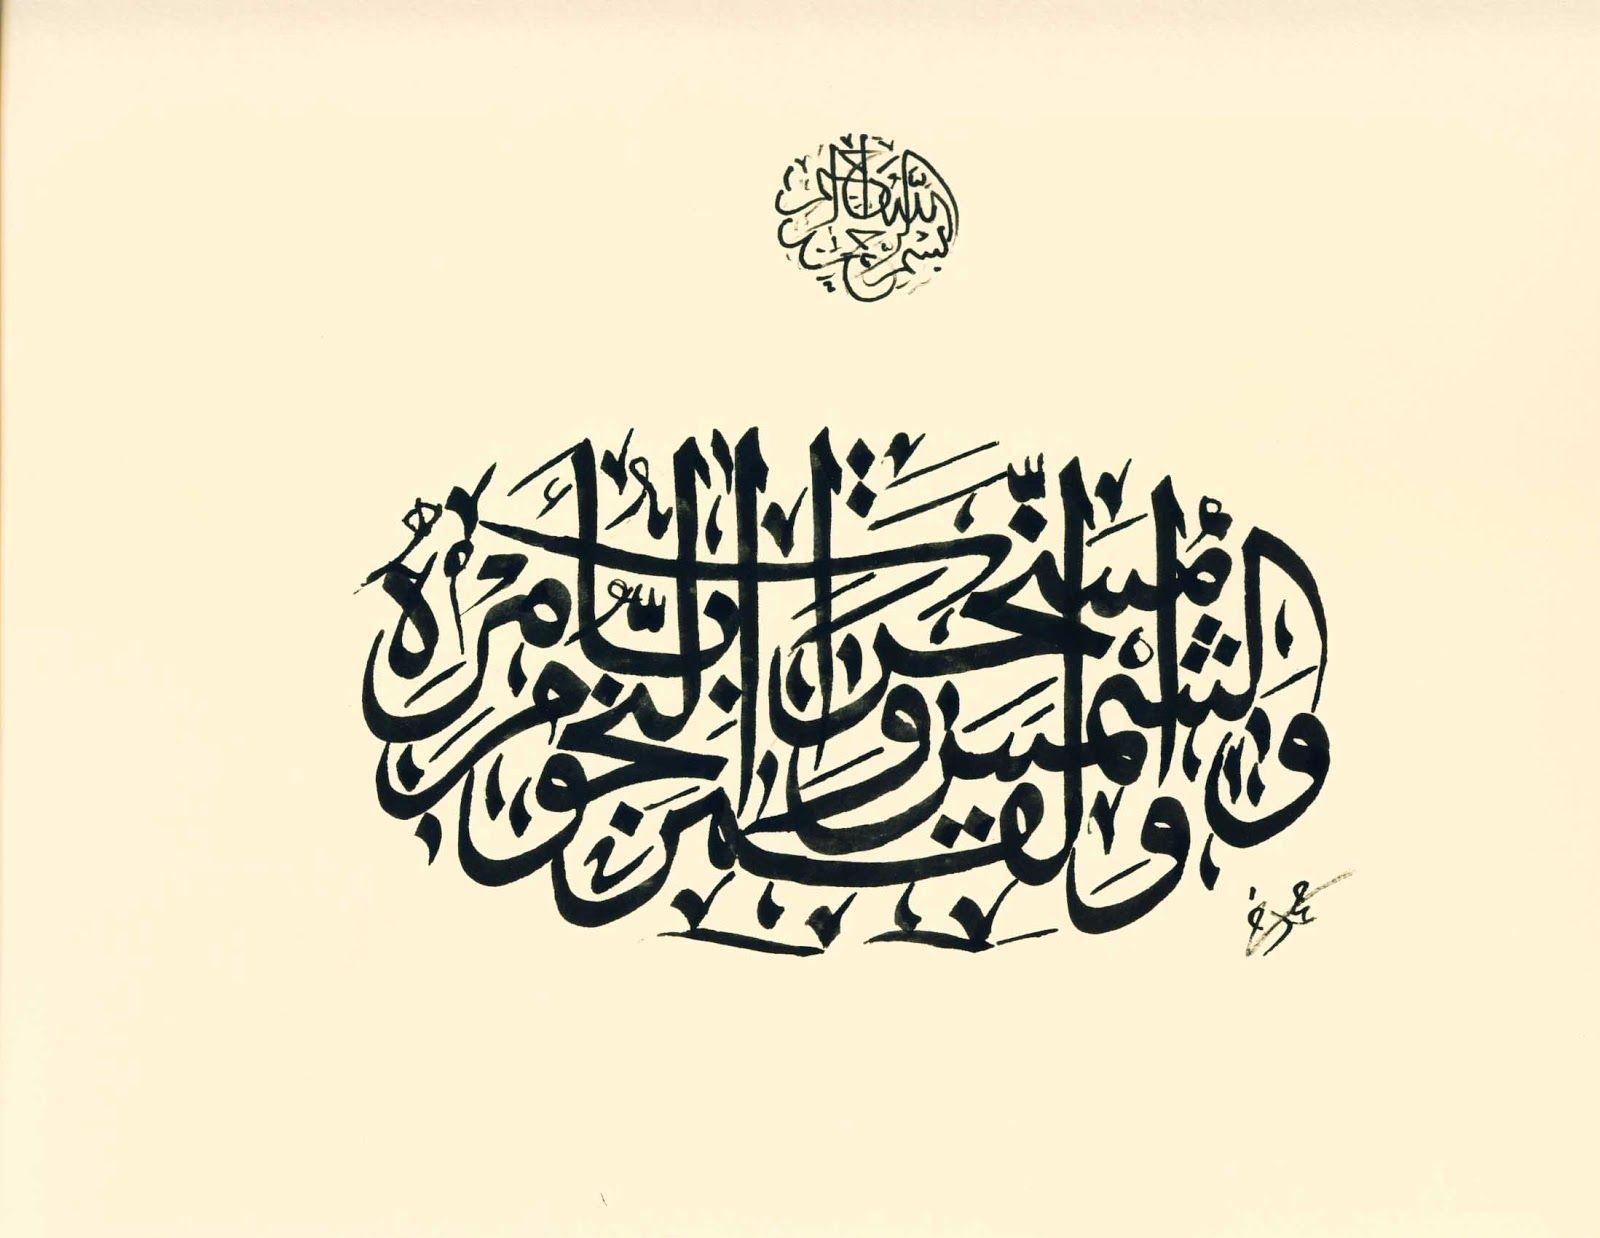 بسم الله الرحمن الرحيم
والشمس والقمر والنجوم مسخرات بأمره